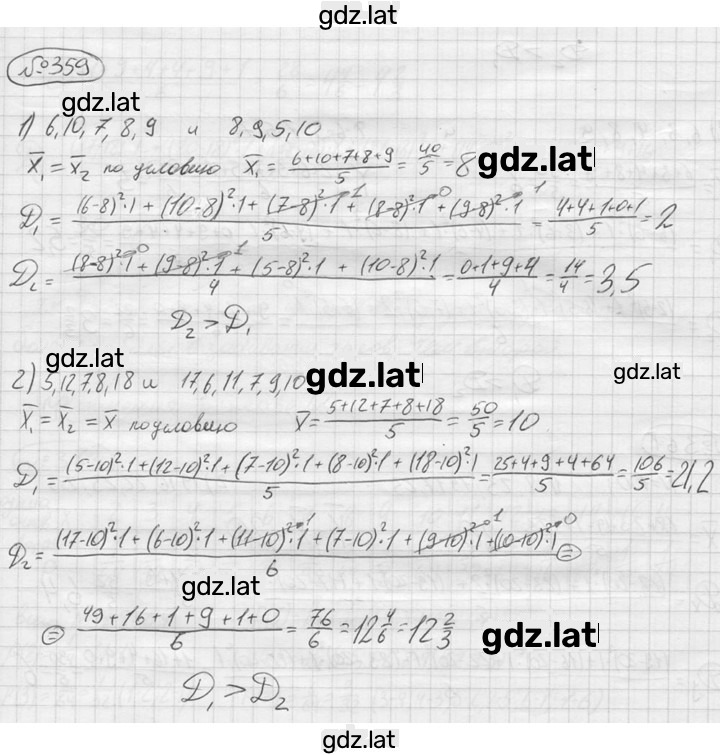 gdz.lat
№359
gdz.lat
1) 6,10,7,8,9 и 8,9,5,10
x̄₁ = x̄₂ по условию x̄₁ = (6+10+7+8+9)/5 = 40/5 = 8 gdz.lat
D₁ = ((6-8)²·1 + (10-8)²·1 + (7-8)²·1 + (8-8)²·1 + (9-8)²·1)/5 = (4+4+1+0+1)/5 = 2
D₂ = ((8-8)²·1 + (9-8)²·1 + (5-8)²·1 + (10-8)²·1)/4 = (0+1+9+4)/4 = 14/4 = 3,5
D₂ > D₁
gdz.lat gdz.lat gdz.lat
2) 5,12,7,8,18 и 17,6,11,7,9,10
x̄₁ = x̄₂ = x̄ по условию x̄ = (5+12+7+8+18)/5 = 50/5 = 10
D₁ = ((5-10)²·1 + (12-10)²·1 + (7-10)²·1 + (8-10)²·1 + (18-10)²·1)/5 = (25+4+9+4+64)/5 = 106/5 = 21,2
D₂ = ((17-10)²·1 + (6-10)²·1 + (11-10)²·1 + (7-10)²·1 + (9-10)²·1 + (10-10)²·1)/6 =
gdz.lat
= (49+16+1+9+1+0)/6 = 76/6 = 12 4/6 = 12 2/3 gdz.lat
D₁ > D₂
gdz.lat